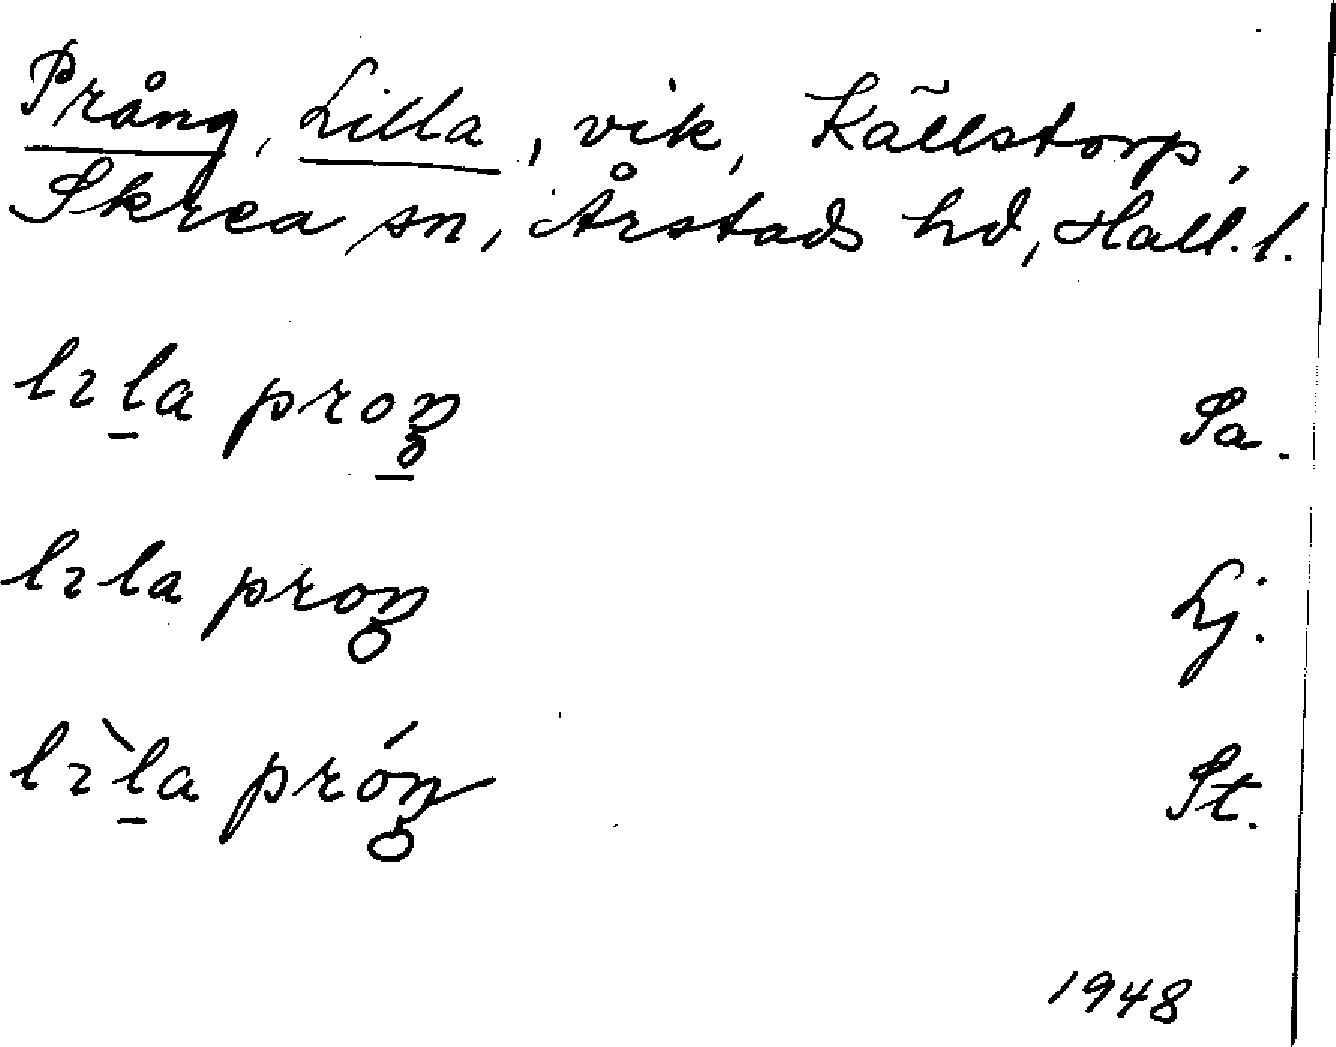 Prång, Lilla, vik, Källstorp,
Skrea sn, Årstads hd, Hall. l.
lɩla proŋ Sa.
lɩla proŋ Lj.
lɩ̀la próŋ St.
1948